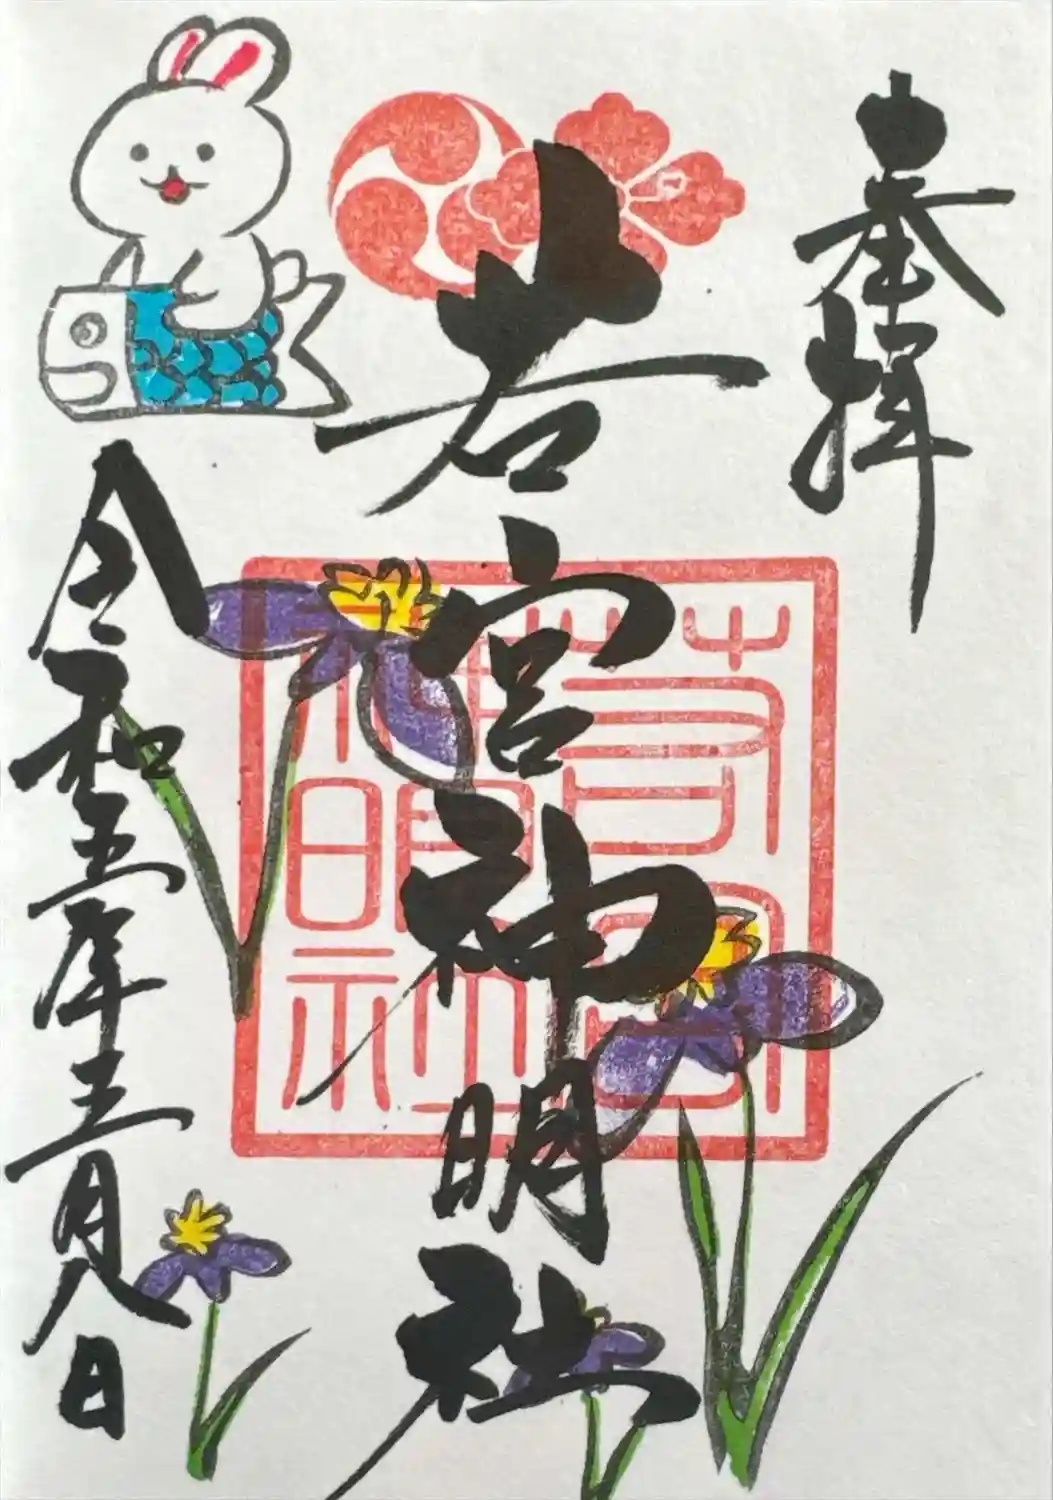 奉拝
若宮神明社
若宮
神明社
令和五年五月八日